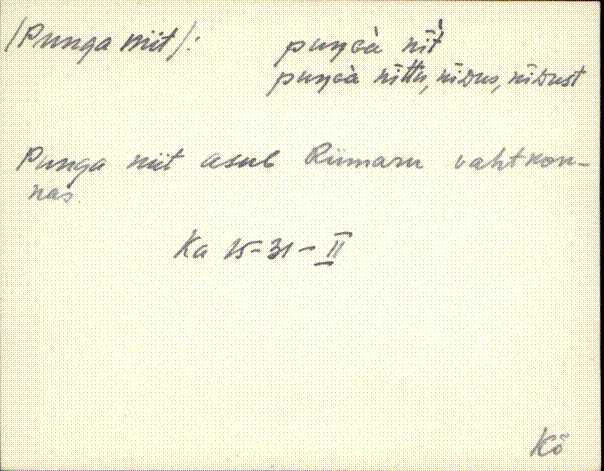 /Punga niit/: puŋɢà nīt̀
puŋɢà nīttu, nīᴅus, nīᴅust
Punga niit asub Riimaru vahtkon-
nas.
Ka 15-31-II
Kõ